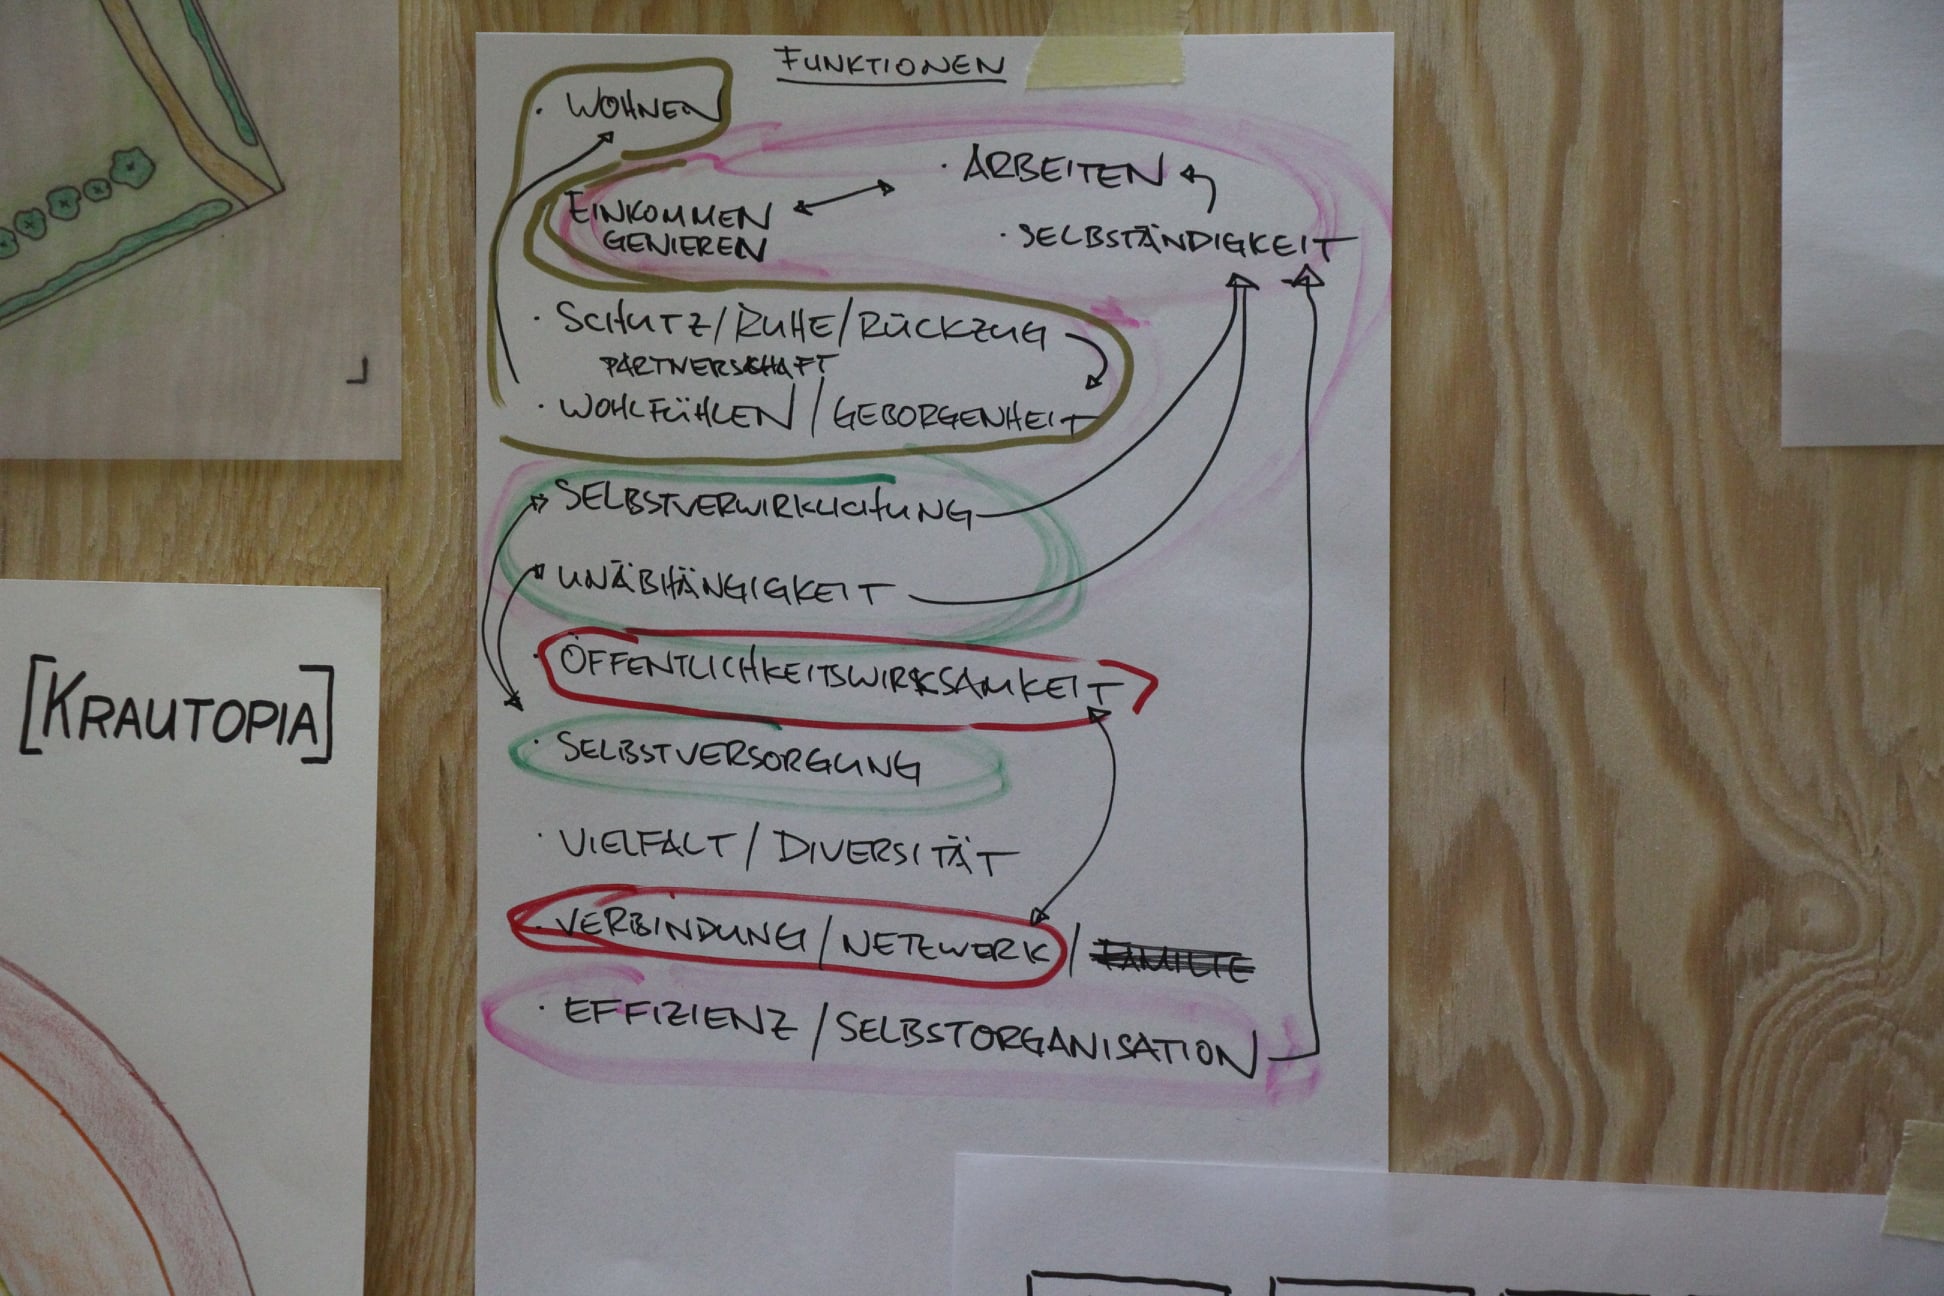 FUNKTIONEN
· WOHNEN
· ARBEITEN
EINKOMMEN
GENIEREN
· SELBSTÄNDIGKEIT
· SCHUTZ/RUHE/RÜCKZUG
PARTNERSCHAFT
· WOHLFÜHLEN/GEBORGENHEIT
· SELBSTVERWIRKLICHUNG
· UNABHÄNGIGKEIT
· ÖFFENTLICHKEITSWIRKSAMKEIT
· SELBSTVERSORGUNG
· VIELFALT/DIVERSITÄT
· VERBINDUNG/NETZWERK/FAMILIE
· EFFIZIENZ/SELBSTORGANISATION
[KRAUTOPIA]